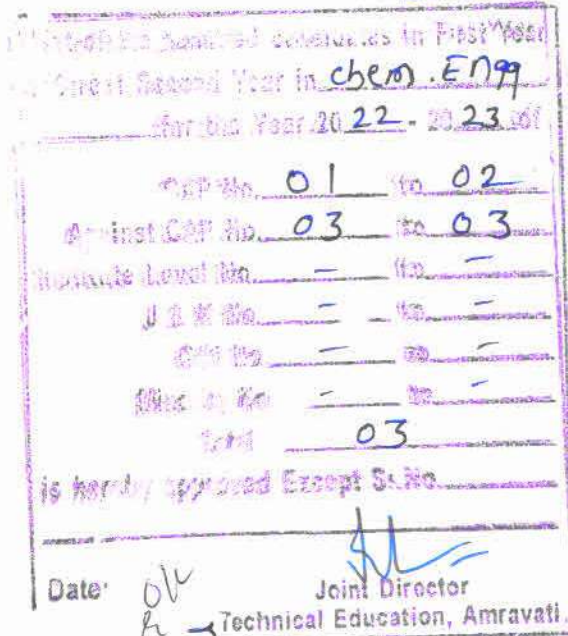 candidates in First Year
Direct Second Year in chem. Engg
for the Year 2022 - 2023 of
CAP No. 01 to 02
Against CAP No. 03 to 03
Institute Level No. - to -
J & K No. - to -
No. - to -
No. - to -
Total 03
is hereby approved Except Sr. No.
Date:
Joint Director
Technical Education, Amravati.